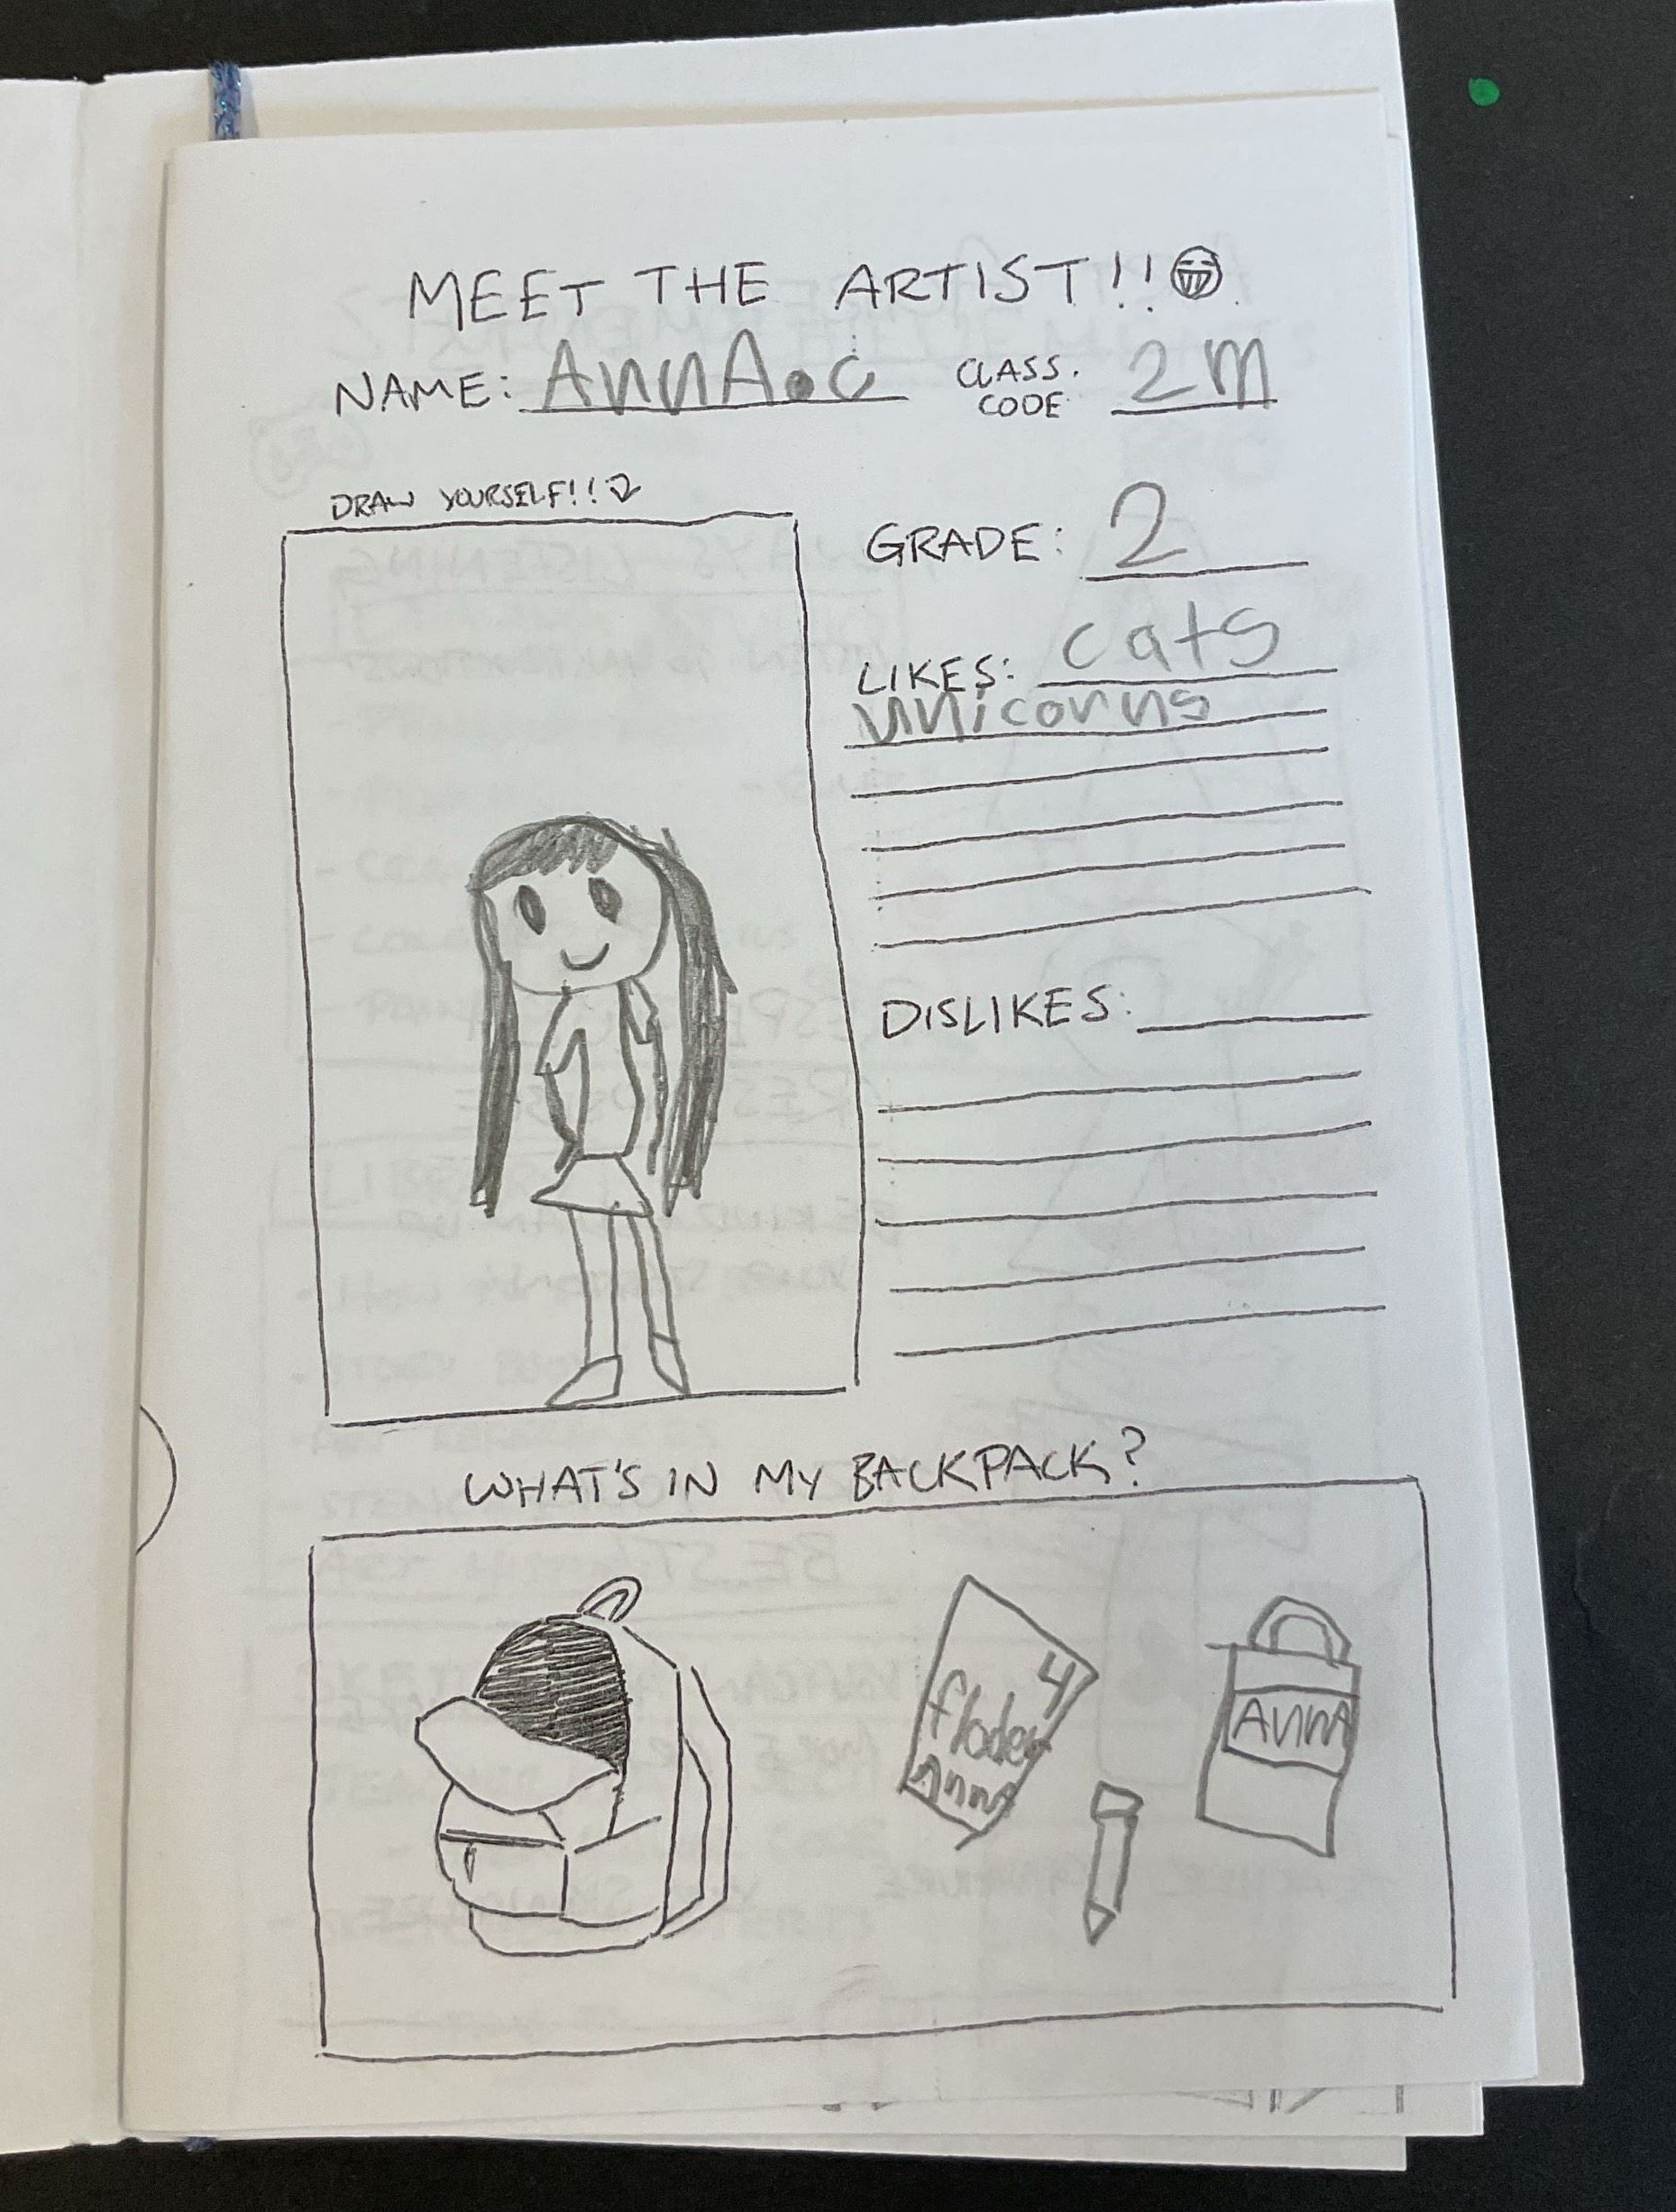 MEET THE ARTIST!!
NAME: AnnA.c
CLASS.
CODE 2m
DRAW YOURSELF!!
GRADE: 2
LIKES: cats
unicorns
DISLIKES:
WHAT'S IN MY BACKPACK?
4
floder
Anna
Anna